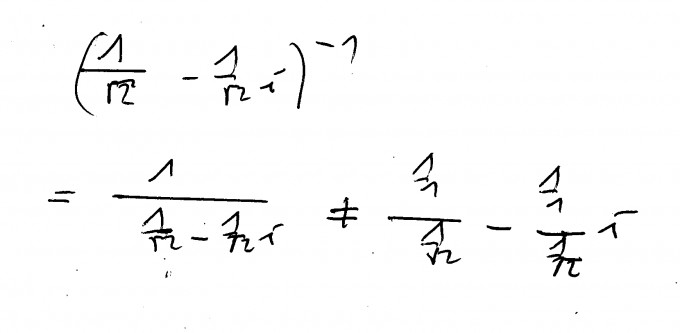 (1/√2 - 1/√2 i)^-1
= 1/(1/√2 - 1/√2 i) ≠ (1/1)/(1/√2) - (1/1)/(1/√2) i